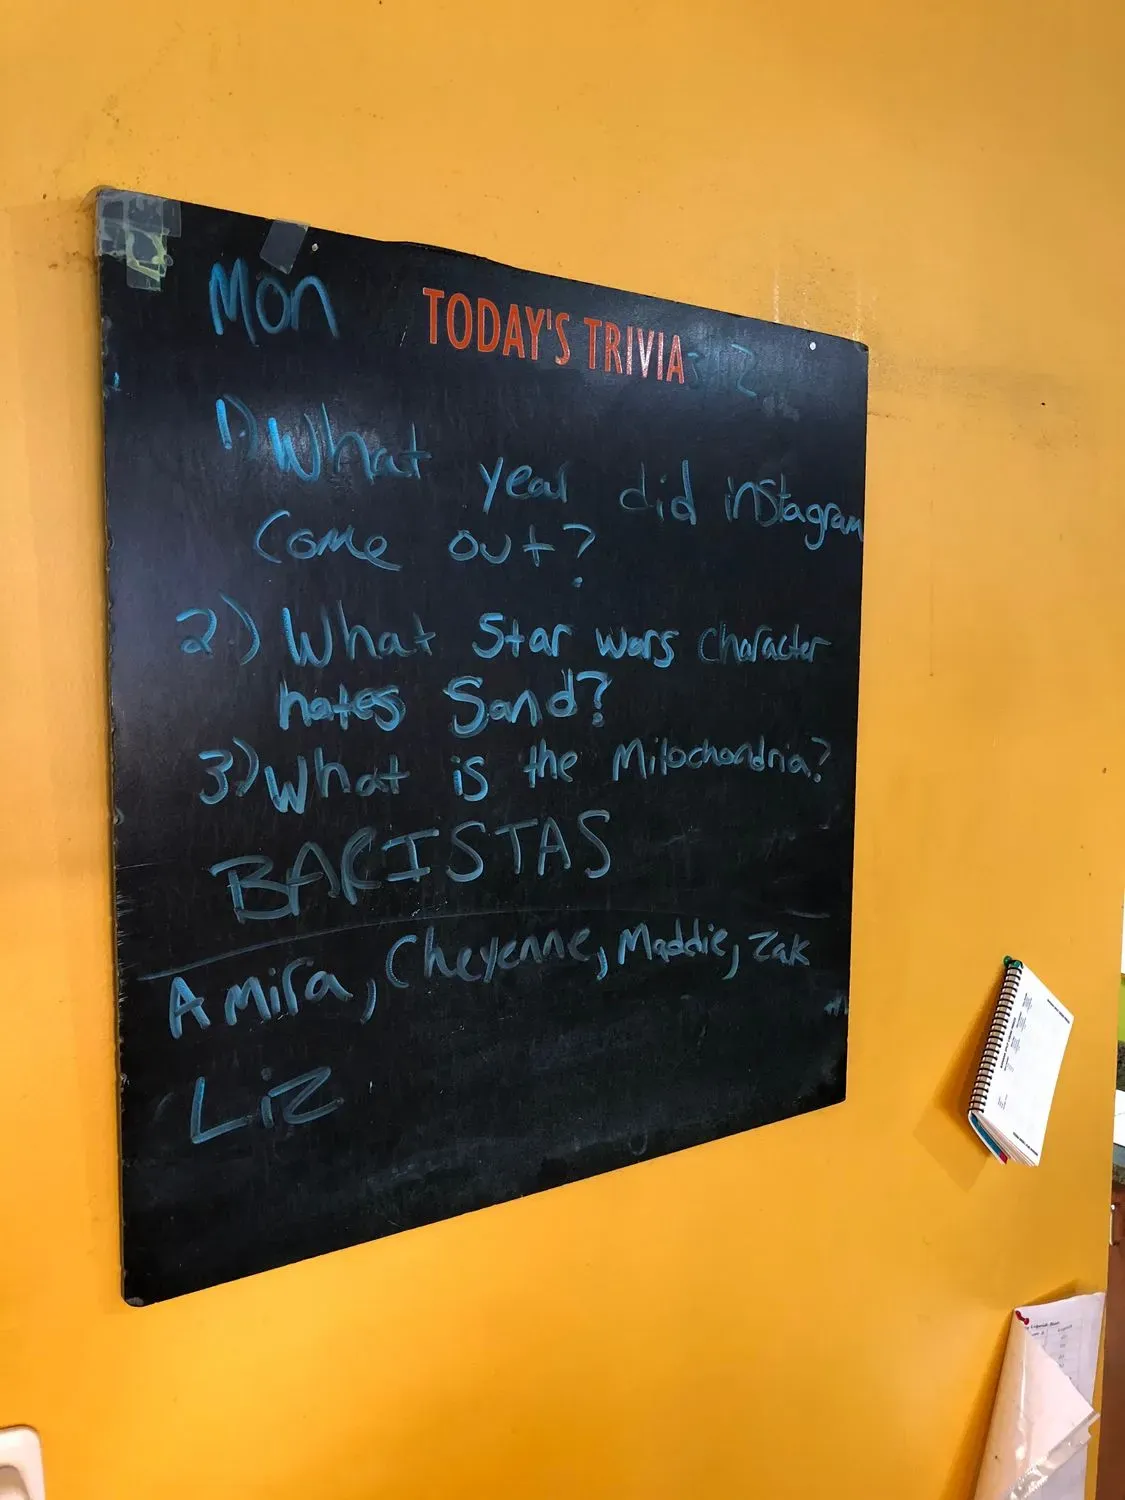 Mon
TODAY'S TRIVIA
1) What year did instagram
Come out?
2) What Star wars character
hates Sand?
3) What is the Mitochondria?
BARISTAS
Amira, Cheyenne, Maddie, Zak
Liz